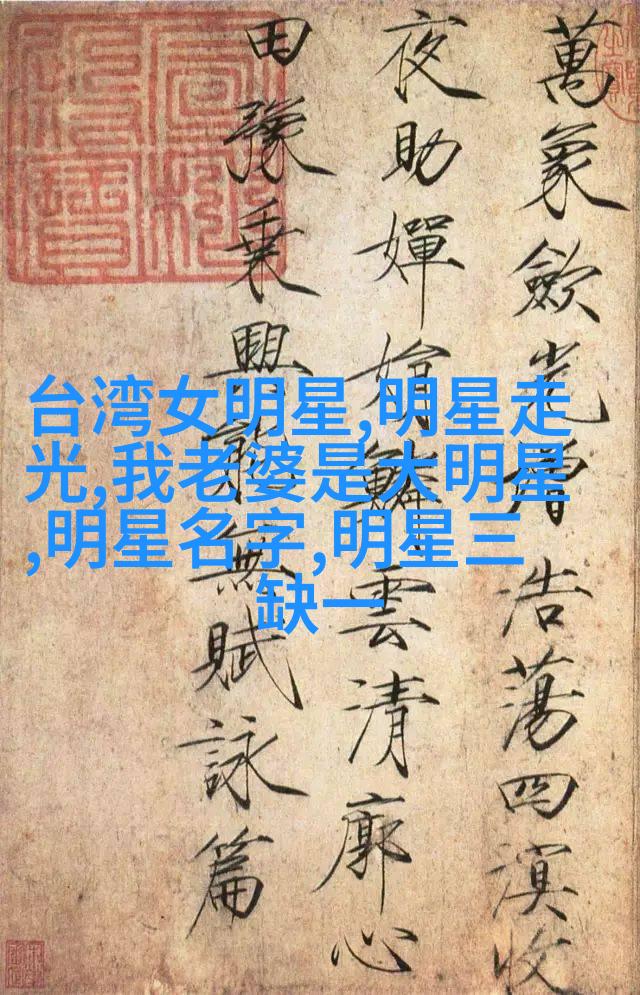 萬象歛光增浩蕩四溟收
夜助嬋娟鱗雲清廓心
田豫乗興能無賦詠篇
台湾女明星,明星走
光,我老婆是大明星
,明星名字,明星三
缺一